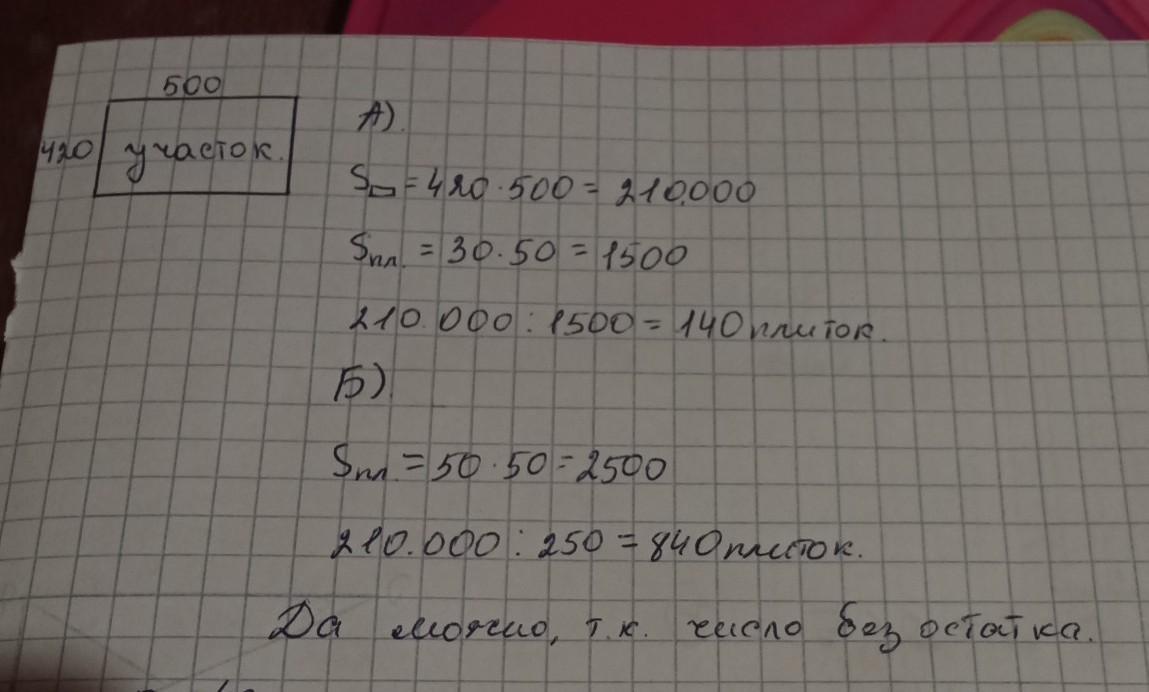 500
420 участок.
А).
S▭ = 420·500 = 210.000
Sпл. = 30·50 = 1500
210.000 : 1500 = 140 плиток.
Б)
Sпл. = 50·50 = 2500
210.000 : 250 = 840 плиток.
Да можно, т.к. число без остатка.